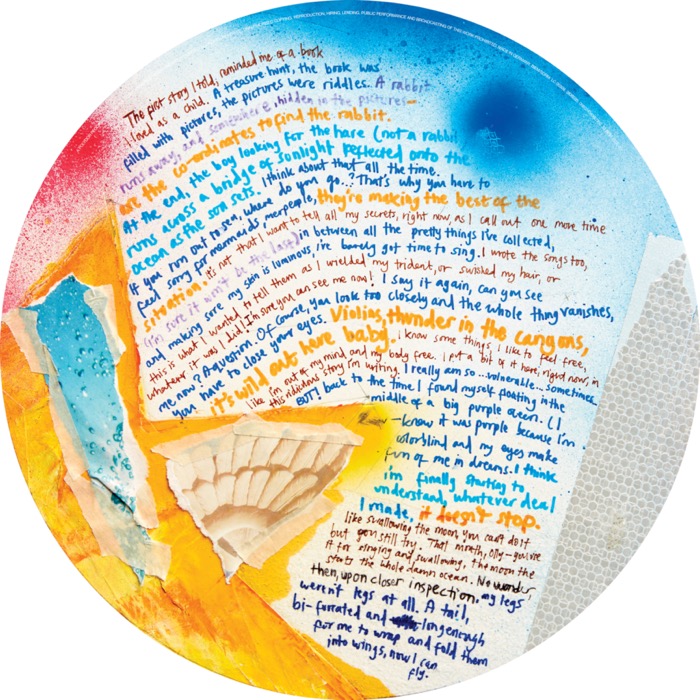 REPRODUCTION, HIRING, LENDING, PUBLIC PERFORMANCE AND BROADCASTING OF THIS WORK PROHIBITED. MADE IN
The first story I told, reminded me of a book
I loved as a child. A treasure hunt, the book was
filled with pictures, the pictures were riddles. A rabbit
runs away, and somewhere, hidden in the pictures-
are the co-ordinates to find the rabbit.
At the end, the boy looking for the hare (not a rabbit)
runs across a bridge of sonlight reflected onto the
ocean as the son sets. I think about that all the time.
If you run out to sea, where do you go..? That's why you have to
feel song for mermaids, merpeople, they're making the best of the
situation. It's not that I want to tell all my secrets, right now, as I call out one more time
(I'm sure it won't be the last) in between all the pretty things I've collected,
and making sure my skin is luminous, I've barely got time to sing. I wrote the songs too,
this is what I wanted to tell them as I wielded my trident, or swished my hair, or
whatever it was I did! I'm sure you can see me now! I say it again, can you see
me now? A question. Of course, you look too closely and the whole thing vanishes,
you have to close your eyes. Violins, thunder in the canyons,
it's wild out here baby. I know some things, I like to feel free,
like I'm out of my mind and my body free. I put a bit of it here, right now, in
this ridiculous story I'm writing. I really am so ...vulnerable... sometimes.
BUT! back to the time I found myself floating in the
middle of a big purple ocean. (I
know it was purple because I'm
colorblind and my eyes make
fun of me in dreams. I think
i'm finally starting to
understand, whatever deal
I made, it doesn't stop.
like swallowing the moon, you can't do it
but you still try. That mouth, olly-you use
it for singing and swallowing, the moon the
stars the whole damn ocean. No wonder,
then, upon closer inspection, my legs
weren't legs at all. A tail,
bi-furrated and long enough
for me to wrap and fold them
into wings, now I can
fly.